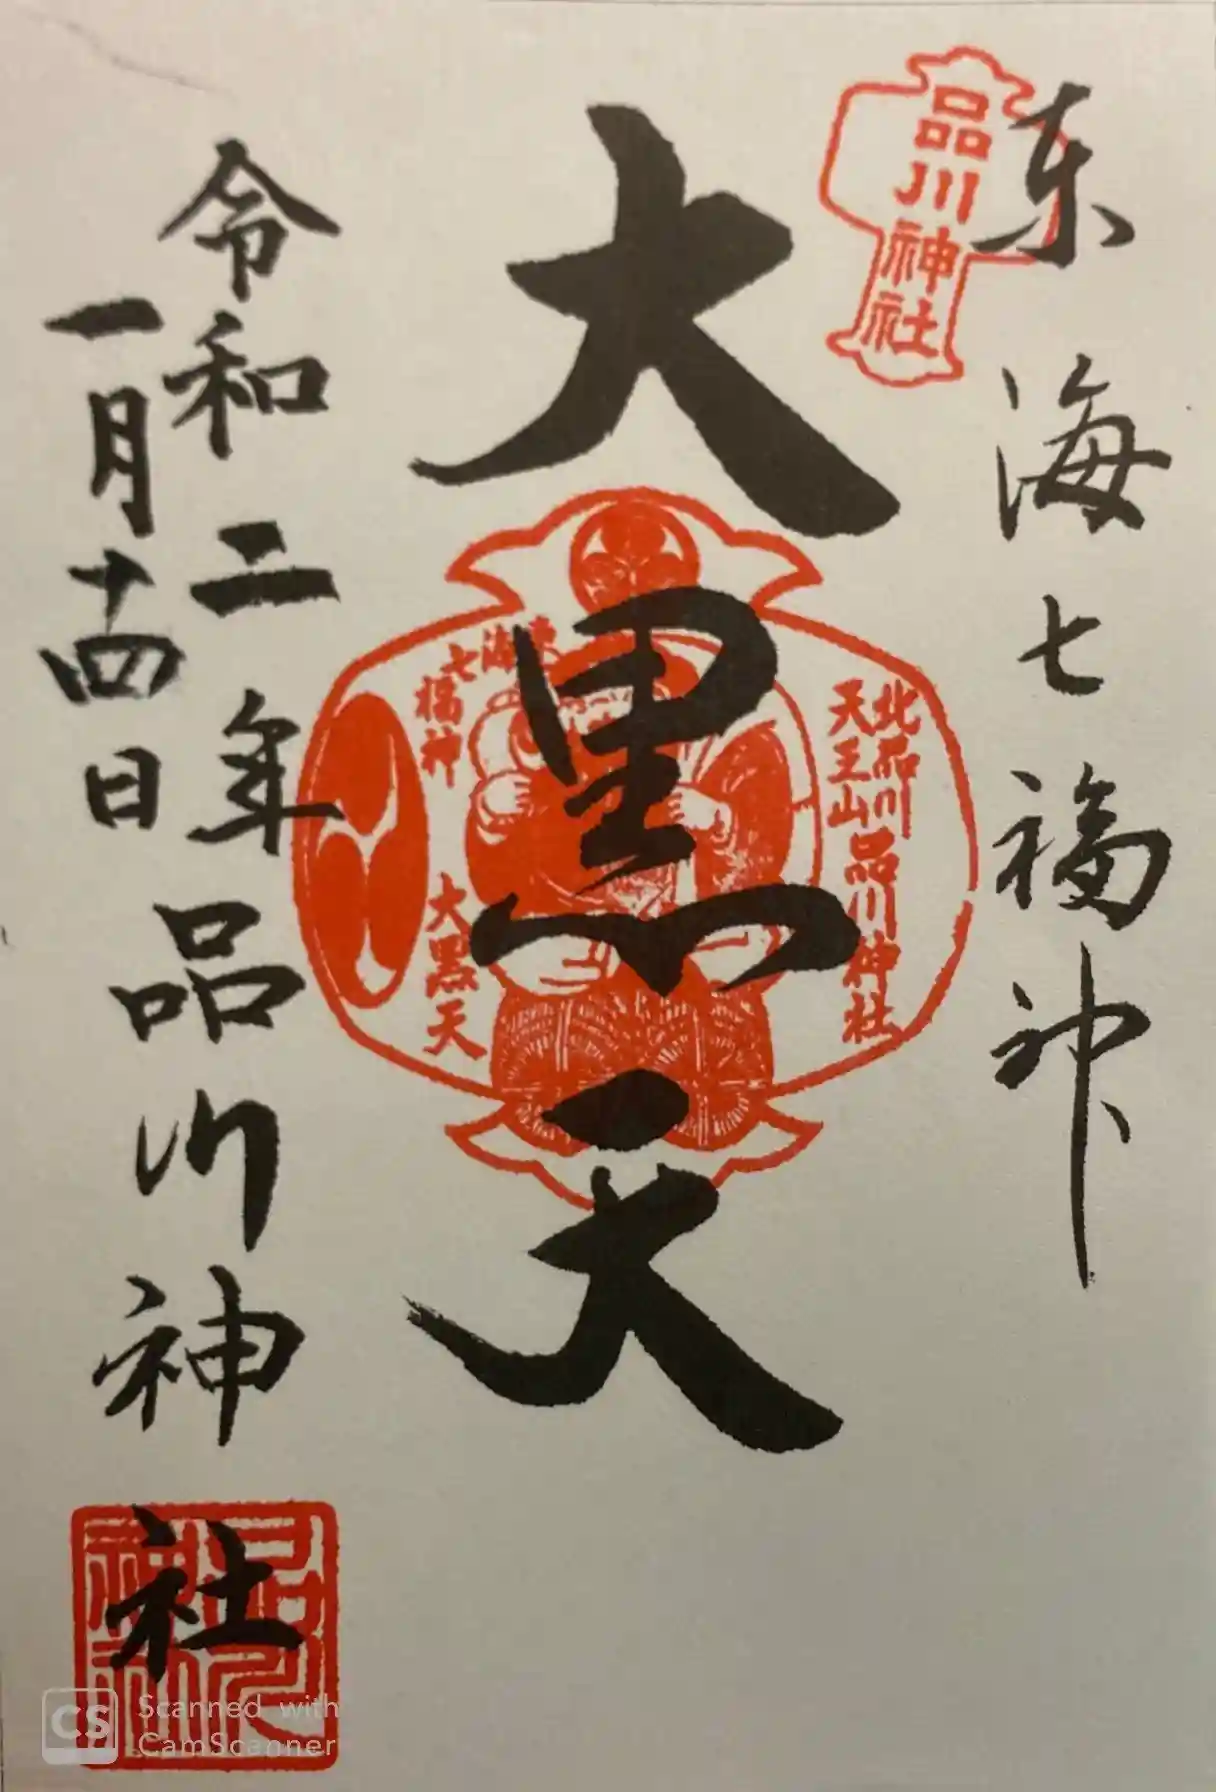 東海七福神
品川神社
大黒天
北品川
天王山
品川神社
東海
七福神
大黒天
令和二年
一月十四日
品川神社
品川神社
CS Scanned with
CamScanner